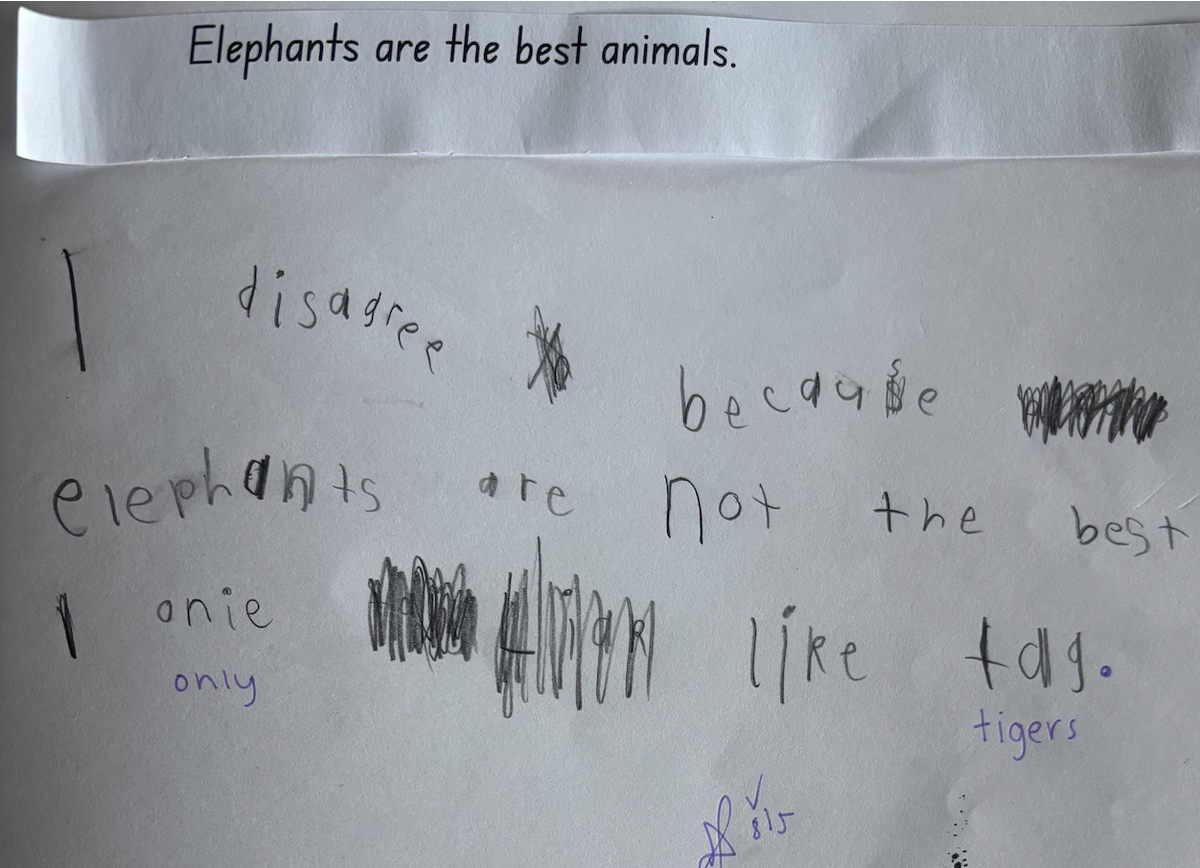 Elephants are the best animals.
I disagree because
elephants are not the best
I onie like tag.
only tigers
8/5